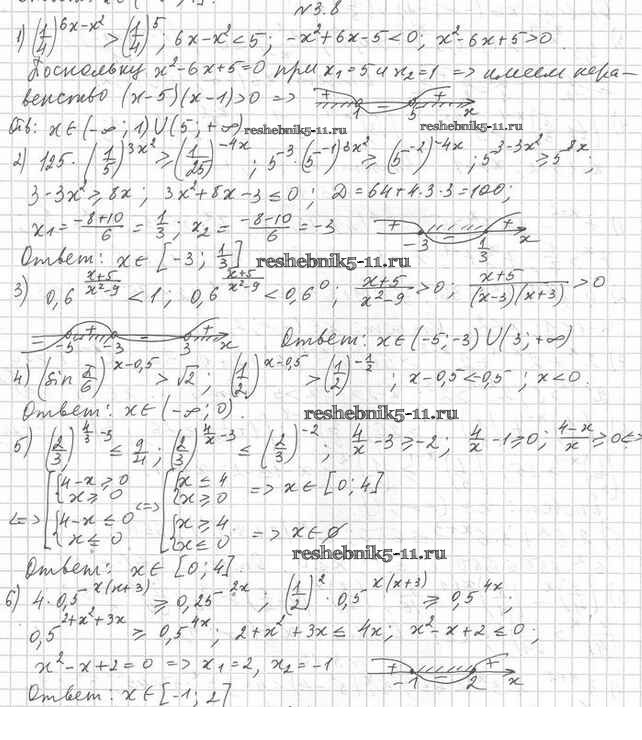 N3.8
1) (1/4)^(6x-x²) > (1/4)^5; 6x-x² < 5; -x²+6x-5<0; x²-6x+5>0
Поскольку x²-6x+5=0 при x₁=5 и x₂=1 => имеем нера-
венство (x-5)(x-1)>0 => + 1 - 5 + x
Отв: x∈(-∞; 1)∪(5; +∞) reshebnik5-11.ru reshebnik5-11.ru
2) 125·(1/5)^(3x²) ≥ (1/25)^(-4x); 5^(-3)·(5^(-1))^(3x²) ≥ (5^(-2))^(-4x); 5^(3-3x²) ≥ 5^(8x);
3-3x² ≥ 8x; 3x²+8x-3 ≤ 0; D = 64+4·3·3 = 100;
x₁ = (-8+10)/6 = 1/3; x₂ = (-8-10)/6 = -3 + -3 - 1/3 + x
Ответ: x∈[-3; 1/3] reshebnik5-11.ru
3) 0,6^((x+5)/(x²-9)) < 1; 0,6^((x+5)/(x²-9)) < 0,6^0; (x+5)/(x²-9) > 0; (x+5)/((x-3)(x+3)) > 0
- -5 + -3 - 3 + x Ответ: x∈(-5;-3)∪(3;+∞)
4) (sin π/6)^(x-0,5) > √2; (1/2)^(x-0,5) > (1/2)^(-1/2); x-0,5 < 0,5; x<0.
Ответ: x∈(-∞; 0). reshebnik5-11.ru
5) (2/3)^(4/3-3) ≤ 9/4; (2/3)^(4/x-3) ≤ (2/3)^(-2); 4/x-3 ≥ -2; 4/x-1 ≥ 0; (4-x)/x ≥ 0 <=>
<=> [ { 4-x ≥ 0 x ≥ 0 <=> [ { x ≤ 4 x ≥ 0 => x∈[0; 4]
{ 4-x ≤ 0 x ≤ 0 { x ≥ 4 x ≤ 0 => x∈∅
reshebnik5-11.ru
Ответ: x∈[0; 4].
6) 4·0,5^(x(x+3)) ≥ 0,25^(2x); (1/2)^2·0,5^(x(x+3)) ≥ 0,5^(4x);
0,5^(2+x²+3x) ≥ 0,5^(4x); 2+x²+3x ≤ 4x; x²-x+2 ≤ 0;
x²-x+2=0 => x₁=2, x₂=-1 + -1 - 2 + x
Ответ: x∈[-1; 2]